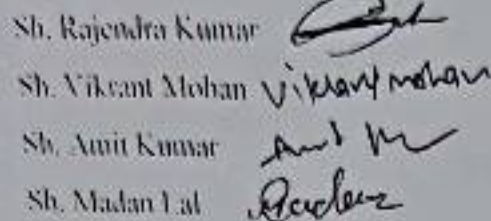 Sh. Rajendra Kumar
Sh. Vikrant Mohan Vikrant mohan
Sh. Amit Kumar
Sh. Madan Lal